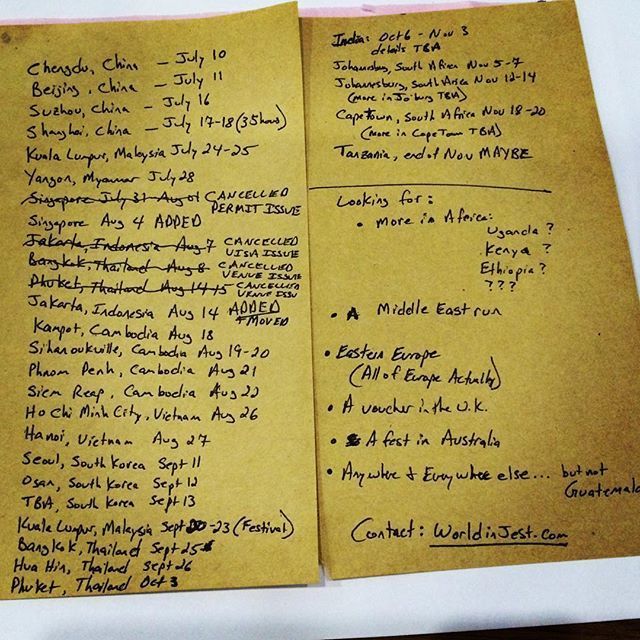 Chengdu, China – July 10
Beijing, China – July 11
Suzhou, China – July 16
Shanghai, China – July 17-18 (3 Shows)
Kuala Lumpur, Malaysia July 24-25
Yangon, Myanmar July 28
Singapore July 31 Aug 01 CANCELLED
PERMIT ISSUE
Singapore Aug 4 ADDED
Jakarta, Indonesia Aug 7 CANCELLED
VISA ISSUE
Bangkok, Thailand Aug 8 CANCELLED
VENUE ISSUE
Phuket, Thailand Aug 14-15 CANCELLED
VENUE ISSU
Jakarta, Indonesia Aug 14 ADDED
+ MOVED
Kampot, Cambodia Aug 18
Sihanoukville, Cambodia Aug 19-20
Phnom Penh, Cambodia Aug 21
Siem Reap, Cambodia Aug 22
Ho Chi Minh City, Vietnam Aug 26
Hanoi, Vietnam Aug 27
Seoul, South Korea Sept 11
Osan, South Korea Sept 12
TBA, South Korea Sept 13
Kuala Lumpur, Malaysia Sept 20-23 (Festival)
Bangkok, Thailand Sept 25
Hua Hin, Thailand Sept 26
Phuket, Thailand Oct 3
India: Oct 6 - Nov 3
details TBA
Johannsburg, South Africa Nov 5-7
Johannesburg, South Africa Nov 12-14
(more in Jo'burg TBA)
Cape Town, South Africa Nov 18-20
(more in Cape Town TBA)
Tanzania, end of Nov MAYBE
Looking for:
• More in Africa:
Uganda ?
Kenya ?
Ethiopia ?
???
• A Middle East run
• Eastern Europe
(All of Europe Actually)
• A voucher in the U.K.
• A fest in Australia
• Anywhere & Everywhere else... but not
Guatemala
Contact: WorldinJest.com